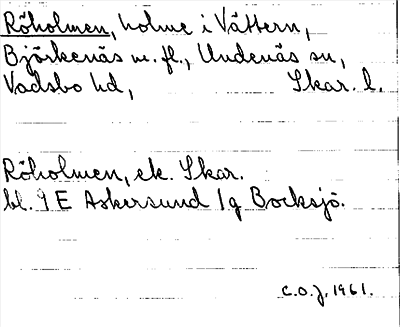 Röholmen, holme i Vättern,
Björkenäs m. fl., Undenäs sn,
Vadsbo hd, Skar. l.
Röholmen, ek. Skar.
bl. 9 E Askersund 1g Bocksjö.
C.O.J. 1961.